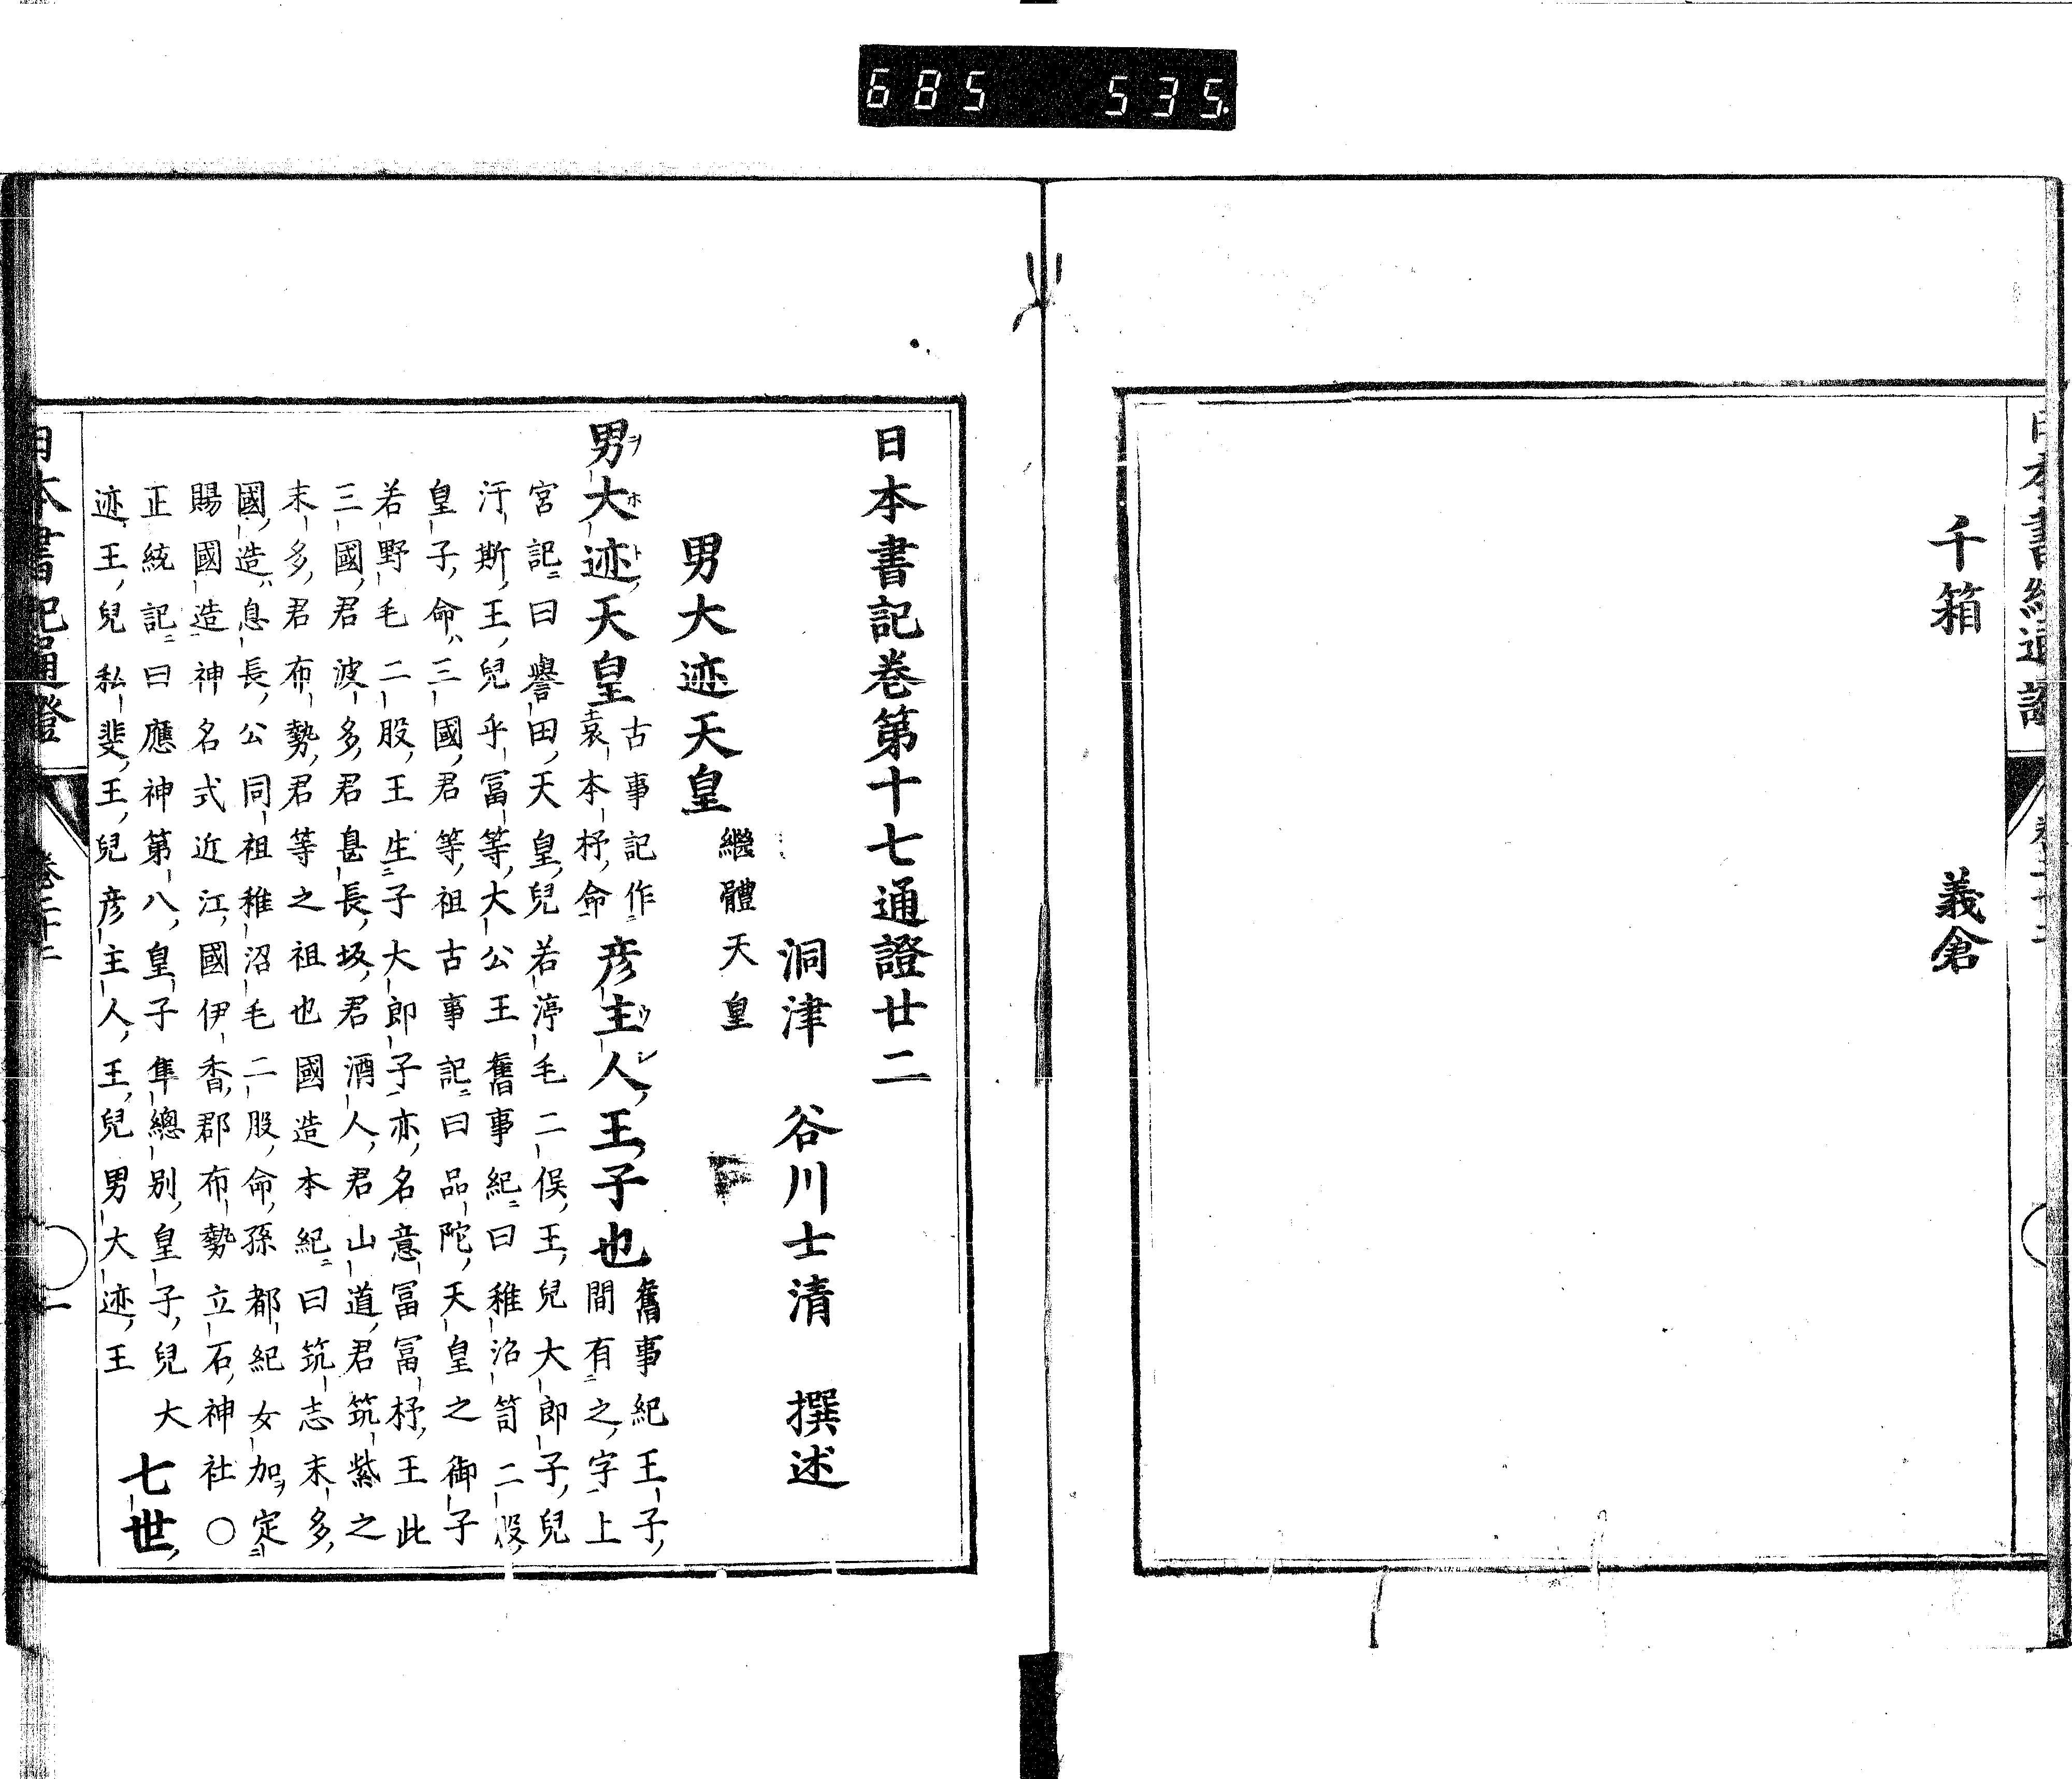 685 535
千箱 義倉
日本書記卷第十七通證廿二
洞津 谷川士清 撰述
男大迹天皇 繼體天皇
男大迹天皇 古事記作袁本杼命 彦主人王子也 舊事紀王子間有之字上
宮記曰譽田天皇兒若渟毛二俣王兒大郎子兒
汙斯王兒乎冨等大公王舊事紀曰稚沼笥二股
皇子命三國君等祖古事記曰品陀天皇之御子
若野毛二股王生子大郎子亦名意冨冨杼王此
三國君波多君息長坂君酒人君山道君筑紫之
末多君布勢君等之祖也國造本紀曰筑志末多
國造息長公同祖稚沼毛二股命孫都紀女加定
賜國造神名式近江國伊香郡布勢立石神社○
正統記曰應神第八皇子隼總別皇子兒大
迹王兒私斐王兒彦主人王兒男大迹王 七世
日本書紀通證 卷二十二 一